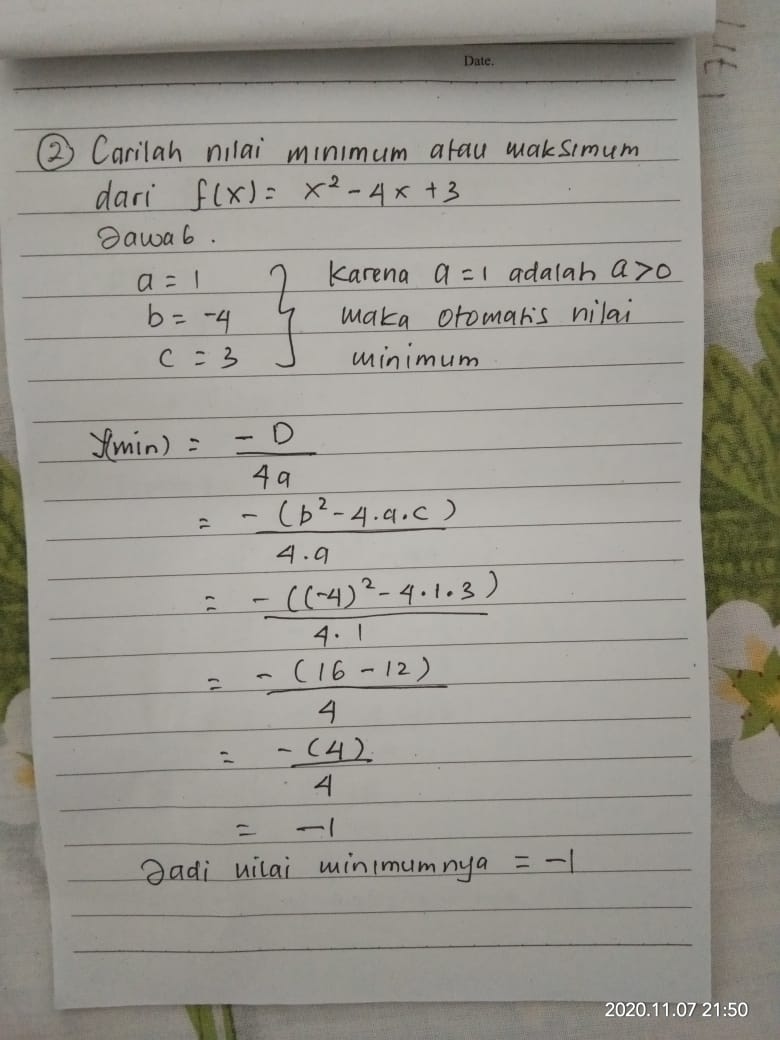 Date.
② Carilah nilai minimum atau maksimum
dari f(x) = x² - 4x + 3
Jawab.
a = 1 } Karena a = 1 adalah a > 0
b = -4 maka otomatis nilai
c = 3 minimum
y(min) = - D
4a
= - (b² - 4.a.c)
4.a
= - ((-4)² - 4.1.3)
4.1
= - (16 - 12)
4
= - (4)
4
= -1
Jadi nilai minimumnya = -1
2020.11.07 21:50